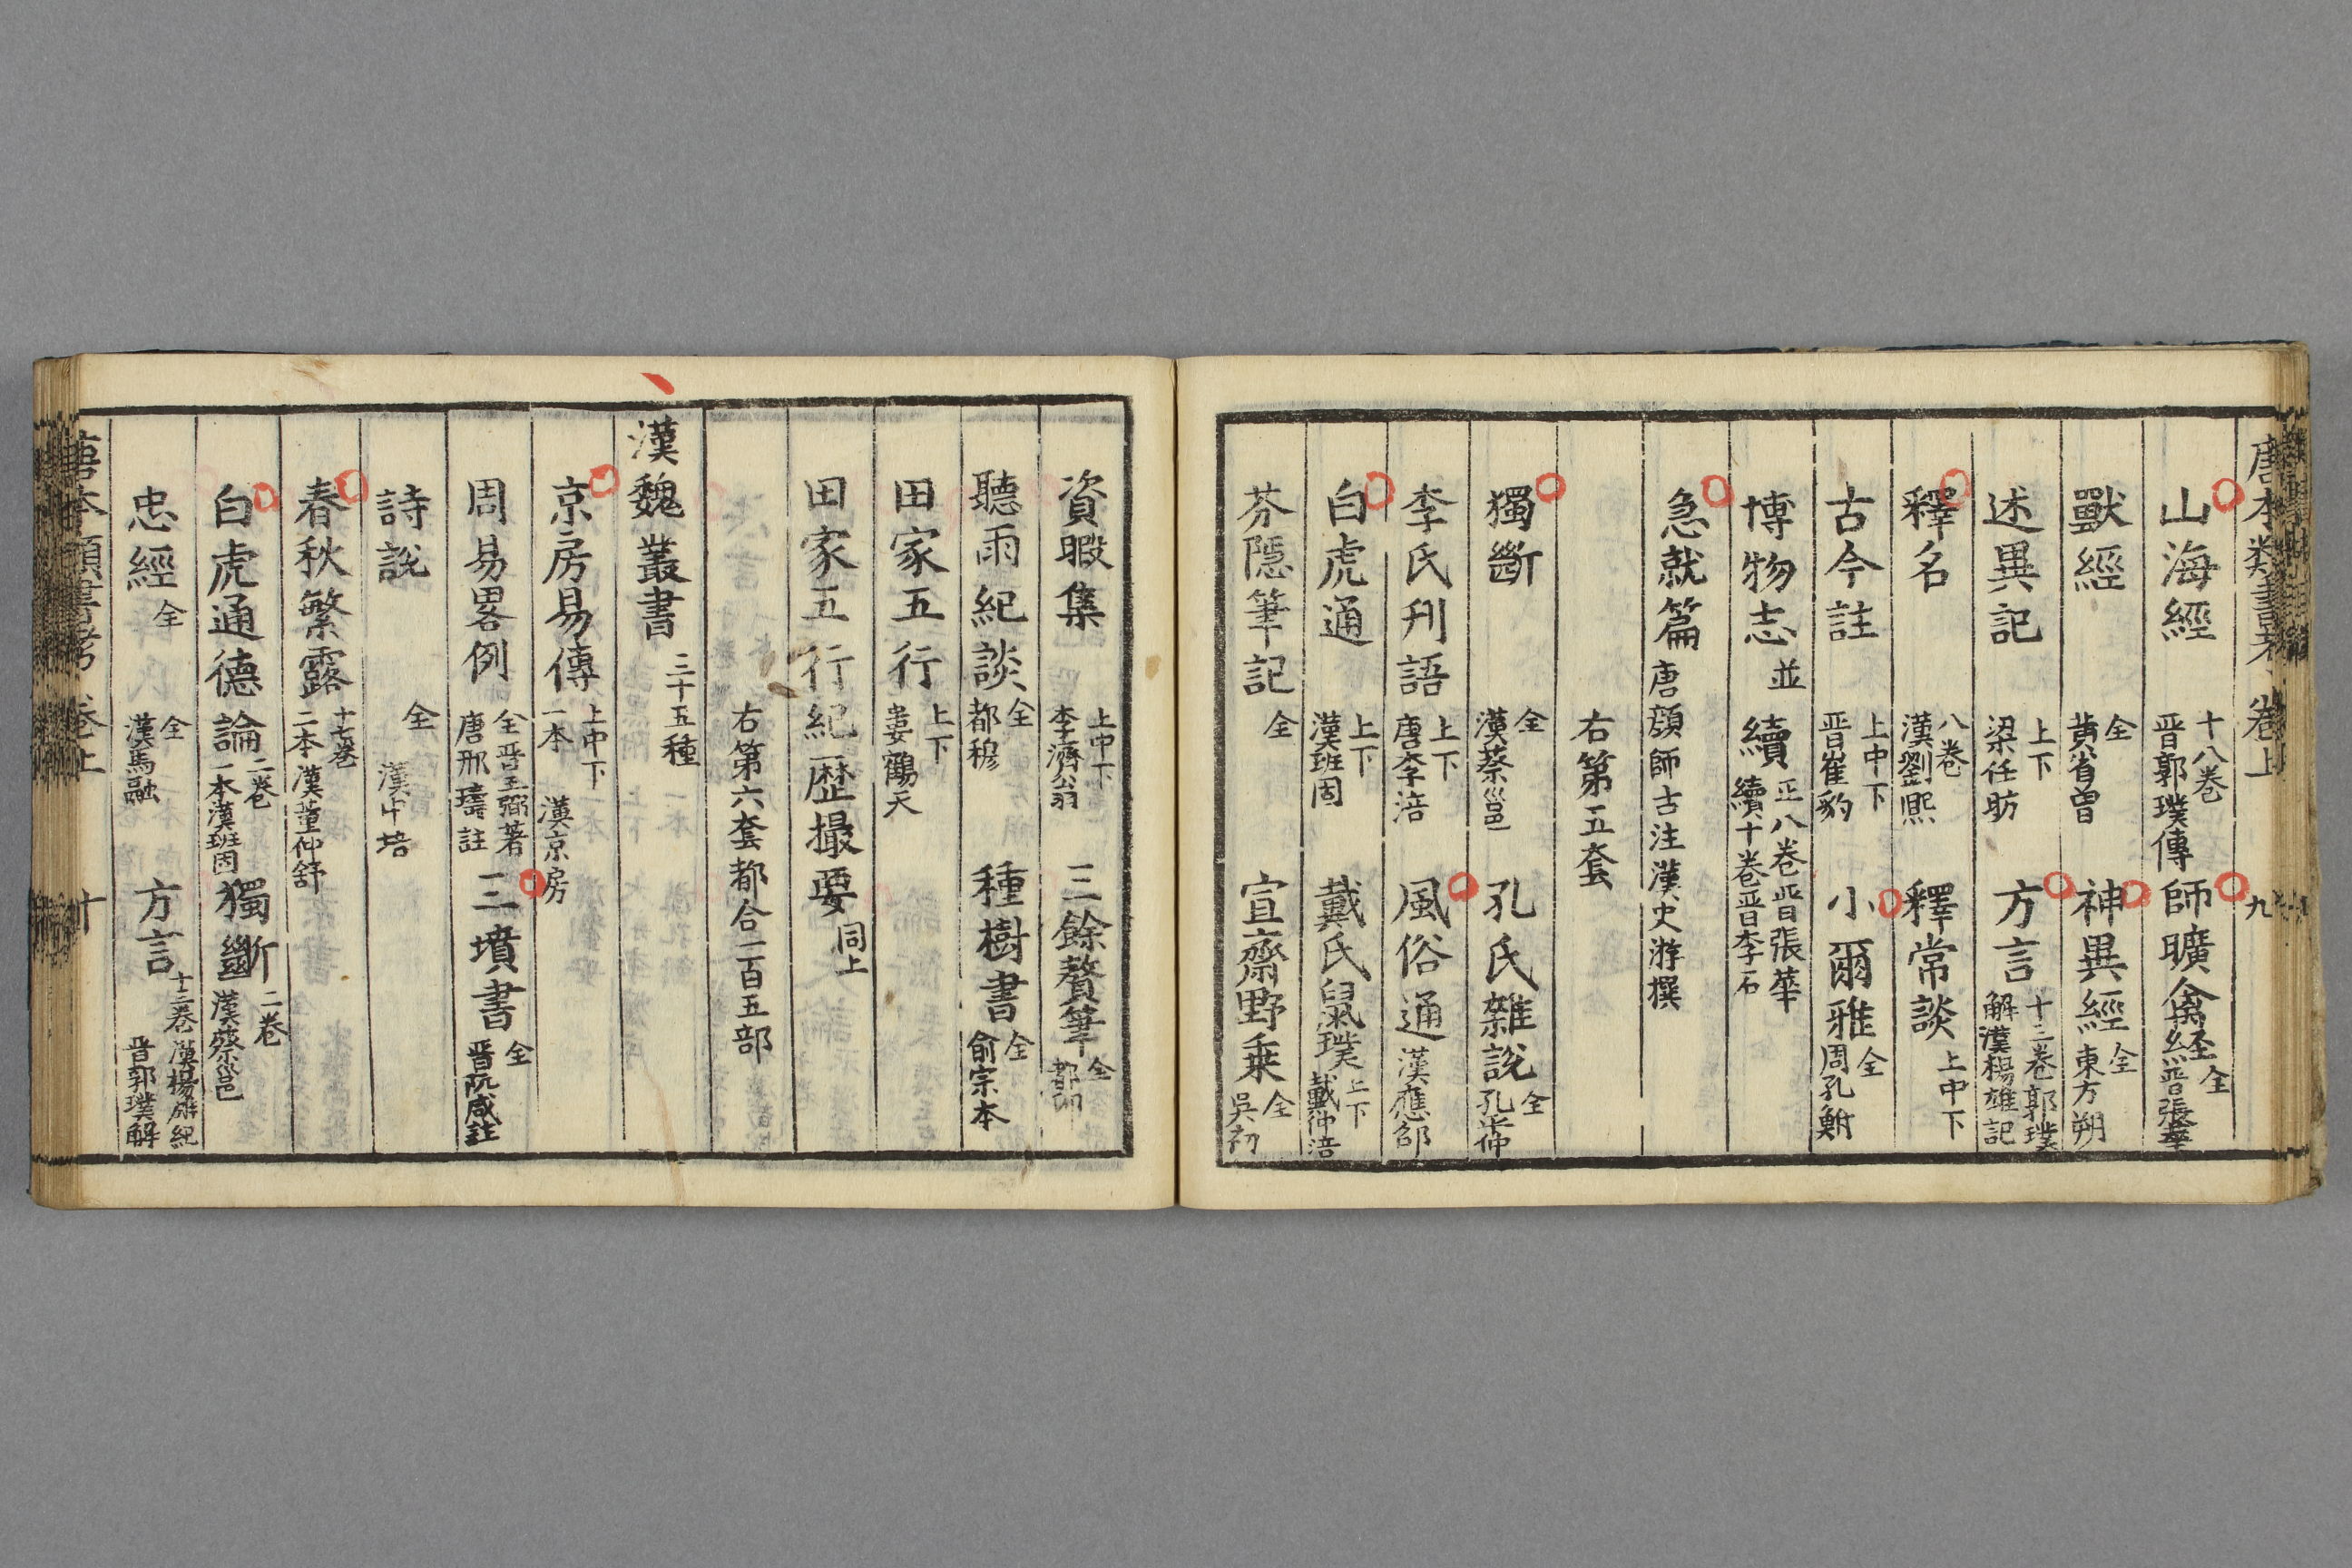 唐本類書考 卷上 九
山海經 十八卷 晋郭璞傳 師曠禽経 全 晋張華
獸經 全 黄省曾 神異經 全 東方朔
述異記 上下 梁任昉 方言 十三卷郭璞解漢楊雄記
釋名 八卷 漢劉熙 釋常談 上中下
古今註 上中下 晋崔豹 小爾雅 全 周孔鮒
博物志 並續 正八卷晋張華 續十卷晋李石
急就篇 唐顔師古注漢史游撰
右第五套
獨斷 全 漢蔡邕 孔氏雜説 全 孔平仲
李氏刋語 上下 唐李涪 風俗通 漢應邵
白虎通 上下 漢班固 戴氏鼠璞 上下 戴仲涪
芥隱筆記 全 宣齋野乗 全 吳初
資暇集 上中下 李濟翁 三餘贅筆 全 都卬
聽雨紀談 全 都穆 種樹書 全 俞宗本
田家五行 上下 婁鶴天
田家五行紀歴撮要 同上
右第六套都合一百五部
漢魏叢書 三十五種
京房易傳 上中下 一本 漢京房
周易畧例 全晋王弼著 唐邢璹註 三墳書 全 晋阮咸註
詩説 全 漢申培
春秋繁露 十七卷 二本漢董仲舒
白虎通德論 二卷 一本漢班固 獨斷 二卷 漢蔡邕
忠經 全 全 漢馬融 方言 十三卷 漢楊雄紀 晋郭璞解
唐本類書考 卷上 十